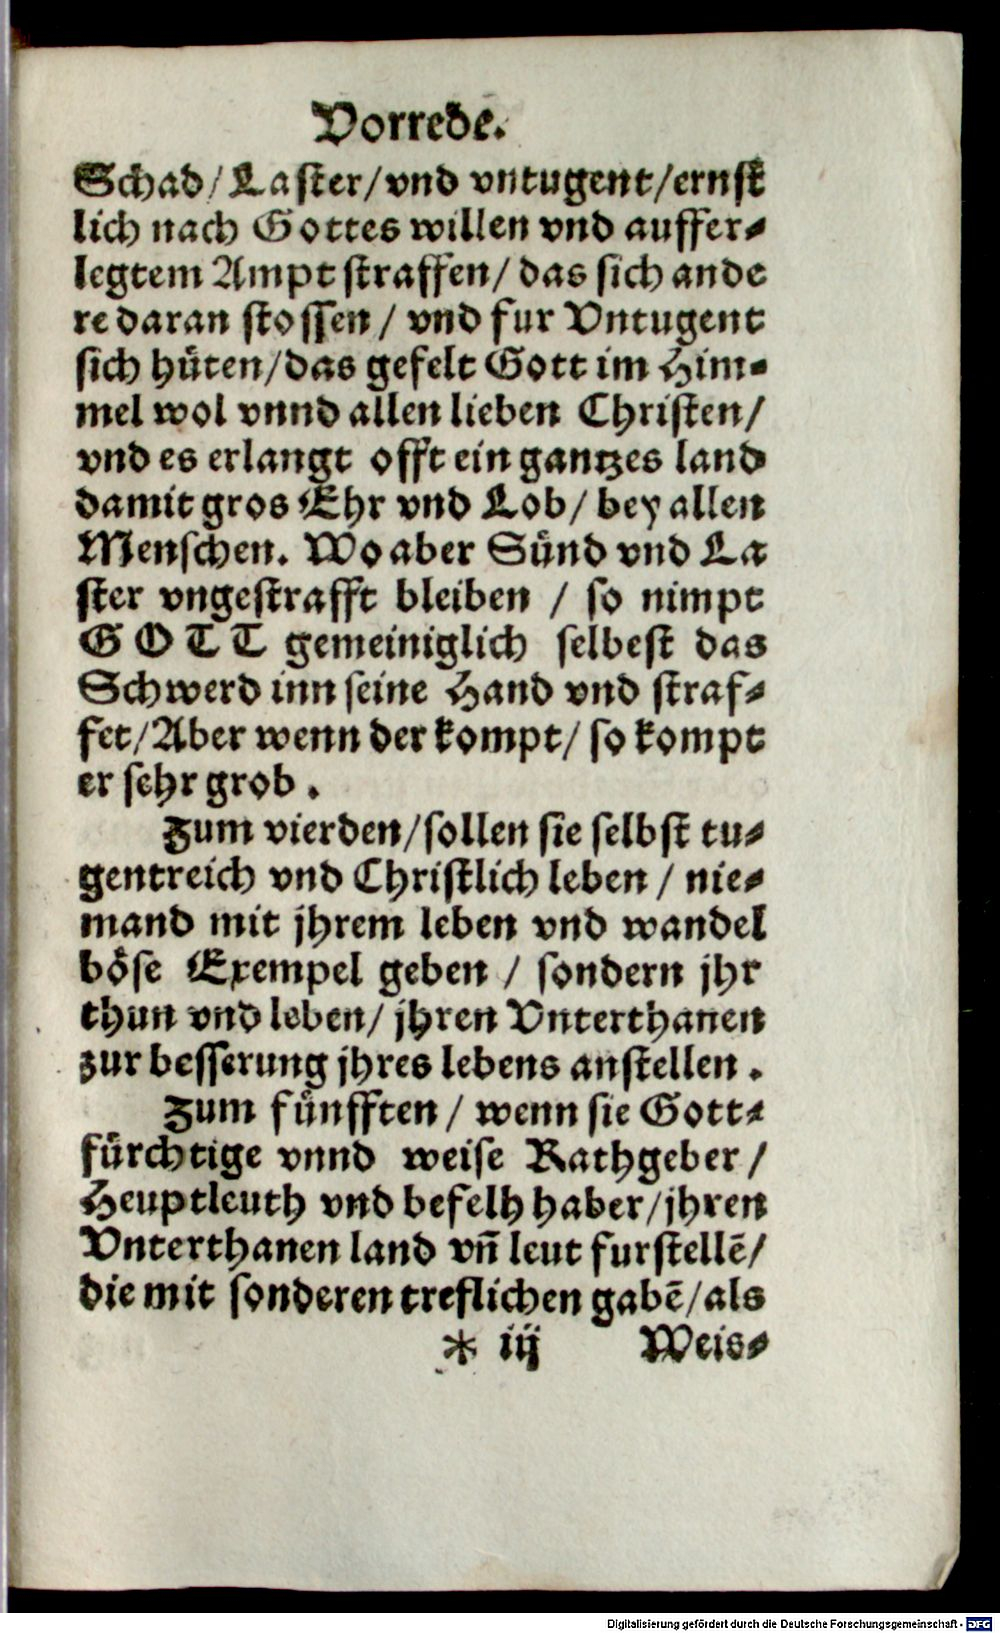 Vorrede.
Schad/ Laster/ vnd vntugent/ ernst
lich nach Gottes willen vnd auffer-
legtem Ampt straffen/ das sich ande
re daran stossen/ vnd fur Vntugent
sich hüten/ das gefelt Gott im Him-
mel wol vnnd allen lieben Christen/
vnd es erlangt offt ein gantzes land
damit gros Ehr vnd Lob/ bey allen
Menschen. Wo aber Sünd vnd La
ster vngestrafft bleiben / so nimpt
GOTT gemeiniglich selbest das
Schwerd inn seine Hand vnd straf-
fet/ Aber wenn der kompt/ so kompt
er sehr grob.
Zum vierden/ sollen sie selbst tu-
gentreich vnd Christlich leben / nie-
mand mit jhrem leben vnd wandel
böse Exempel geben / sondern jhr
thun vnd leben/ jhren Vnterthanen
zur besserung jhres lebens anstellen.
Zum fünfften / wenn sie Gott-
fürchtige vnnd weise Rathgeber /
Heuptleuth vnd befelh haber/ jhren
Vnterthanen land vñ leut furstellẽ/
die mit sonderen treflichen gabẽ/ als
* iij Weis-
Digitalisierung gefördert durch die Deutsche Forschungsgemeinschaft - DFG